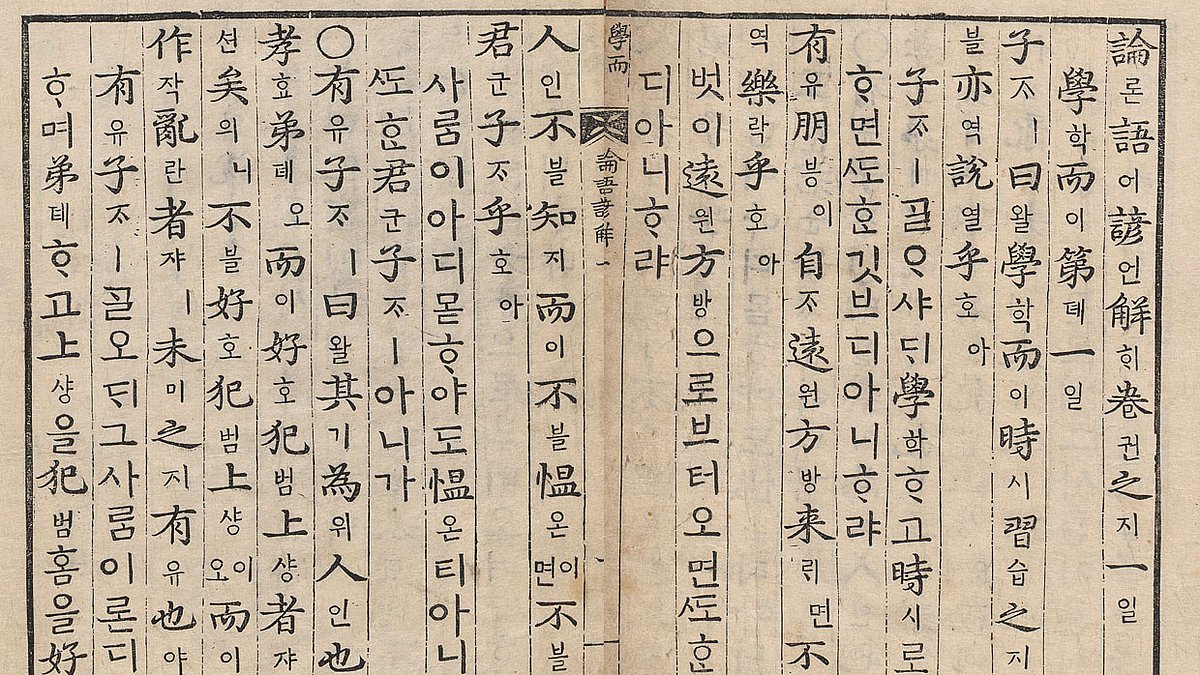 論론語어諺언解ᄒᆡ卷권之지一일
學학而이第뎨一일
子ᄌᆞㅣ曰왈學학而이時시習습之지
블亦역說열乎호아
子ᄌᆞㅣᄀᆞᆯᄋᆞ샤ᄃᆡ學학ᄒᆞ고時시로
ᄒᆞ면ᄯᅩᄒᆞᆫ깃브디아니ᄒᆞ랴
有유朋븡이自ᄌᆞ遠원方방来ᄅᆡ면不
역樂락乎호아
벗이遠원方방으로브터오면ᄯᅩᄒᆞᆫ
디아니ᄒᆞ랴
學而 論語諺解一
人인不블知지而이不블慍온이면不블
君군子ᄌᆞ乎호아
사ᄅᆞᆷ이아디몯ᄒᆞ야도慍온티아니
ᄯᅩᄒᆞᆫ君군子ᄌᆞㅣ아니가
〇有유子ᄌᆞㅣ曰왈其기為위人인也
孝효弟뎨오而이好호犯범上샹者쟈
션矣의니不블好호犯범上샹이오而이
作작亂란者쟈ㅣ未미之지有유也야
有유子ᄌᆞㅣᄀᆞᆯ오ᄃᆡ그사ᄅᆞᆷ이론디
ᄒᆞ며弟뎨ᄒᆞ고上샹을犯범홈을好